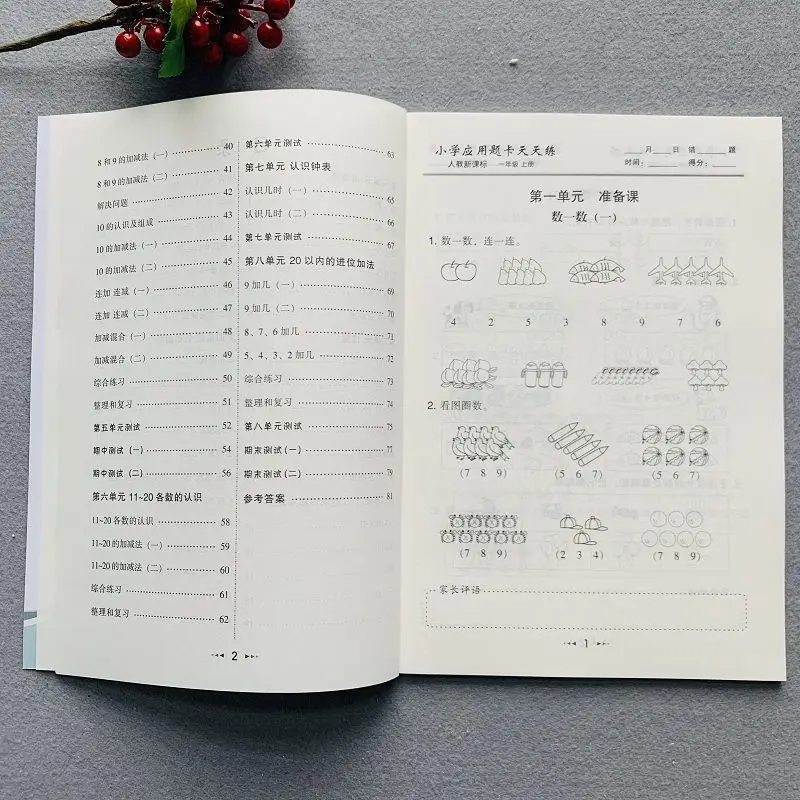 8 和 9 的加减法（一） 40
8 和 9 的加减法（二） 41
解决问题 42
10 的认识及组成 43
10 的加减法（一） 44
10 的加减法（二） 45
连加 连减（一） 46
连加 连减（二） 47
加减混合（一） 48
加减混合（二） 49
综合练习 50
整理和复习 51
第五单元测试 52
期中测试（一） 54
期中测试（二） 56
第六单元 11~20 各数的认识
11~20 各数的认识 58
11~20 的加减法（一） 59
11~20 的加减法（二） 60
综合练习 61
整理和复习 62
第六单元测试 63
第七单元 认识钟表
认识几时（一） 65
认识几时（二） 66
第七单元测试 67
第八单元 20 以内的进位加法
9 加几（一） 69
9 加几（二） 70
8、7、6 加几 71
5、4、3、2 加几 72
综合练习 73
整理和复习 74
第八单元测试 75
期末测试(一) 77
期末测试(二) 79
参考答案 81
2
小学应用题卡天天练
人教新课标 一年级 上册
月 日 错 题
时间： 得分：
第一单元 准备课
数一数（一）
1. 数一数，连一连。
4 2 5 3 8 9 7 6
2. 看图圈数。
(7 8 9) (5 6 7) (5 6 7)
(7 8 9) (2 3 4) (7 8 9)
家长评语
1